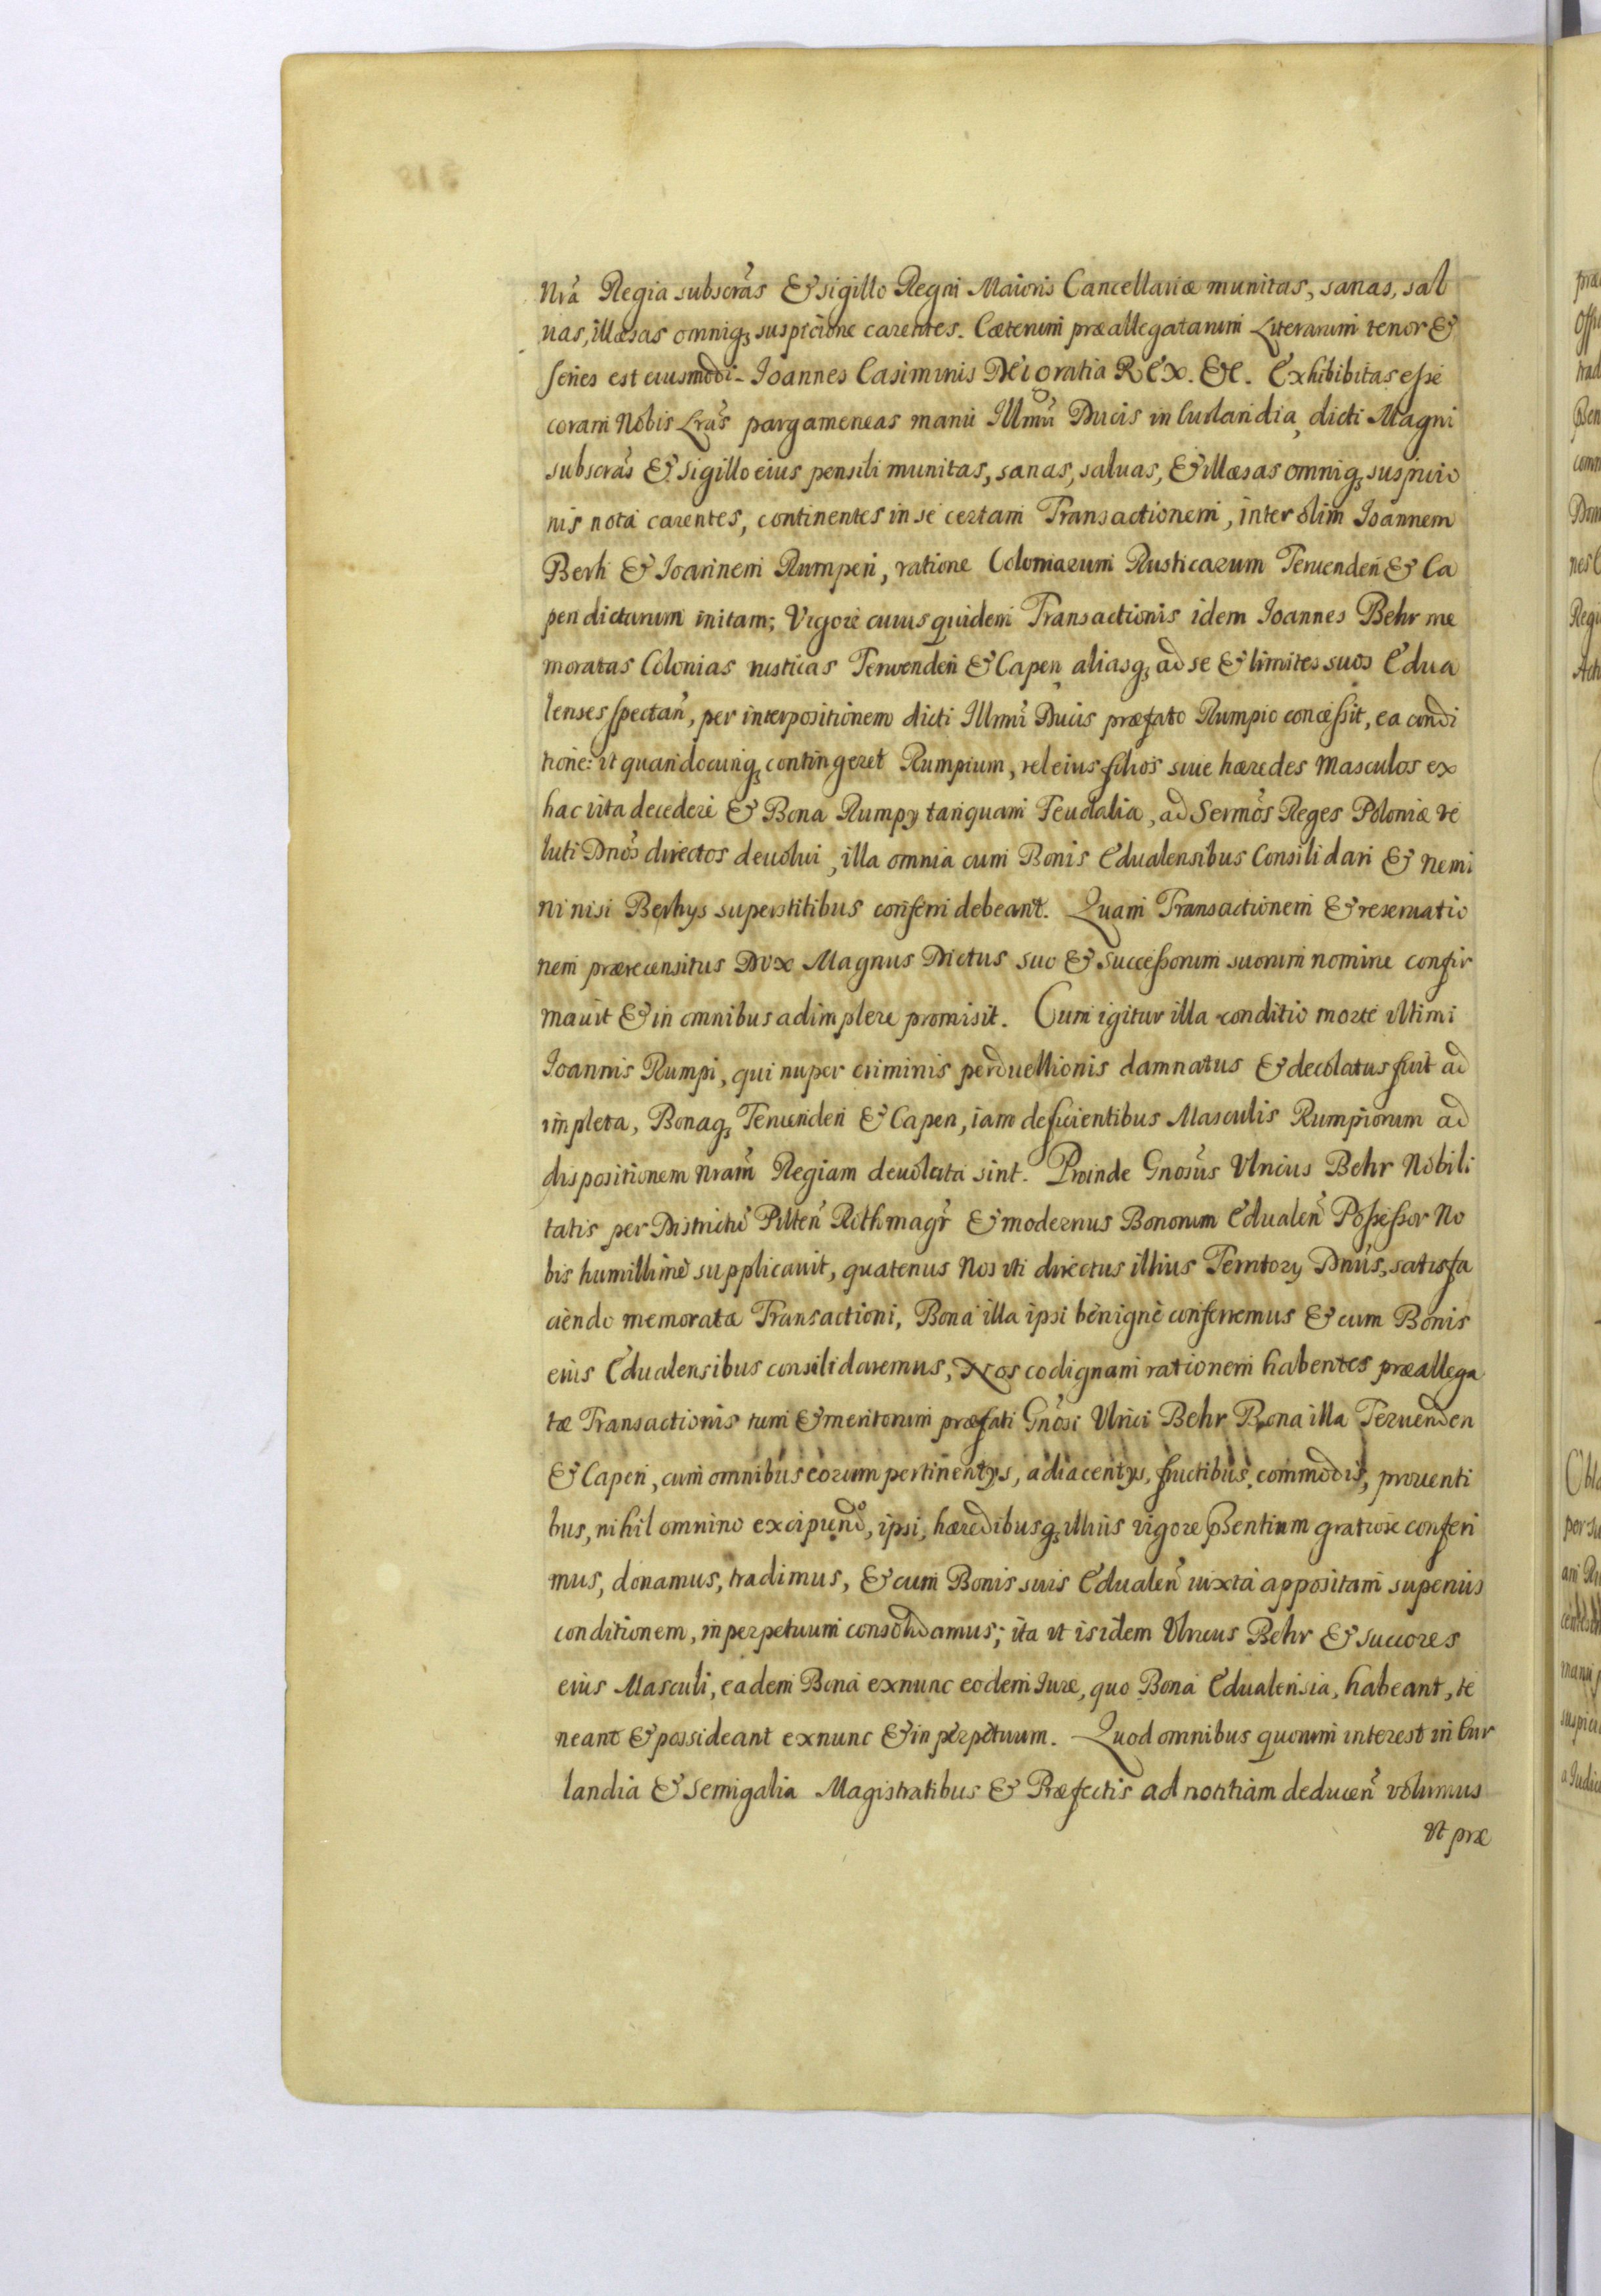 nrã Regia subscrãs & sigillo Regni Maioris Cancellariæ munitas, sanas, sal
uas, illæsas omniq3 suspicione carentes. Cæterum præallegatarum Literarum tenor &
series est eiusmodi - Ioannes Casimirus DEI gratia REX. &c. Exhibibitas esse
coram Nobis Lrãs pargameneas manu Illmi Ducis in Curlandia, dicti Magni
subscrãs & sigillo eius pensili munitas, sanas, saluas, & illæsas omniq3 suspicio
nis nota carentes, continentes in se certam Transactionem, inter olim Ioannem
Berh & Ioannem Rumpen, ratione Coloniarum Rusticarum Teruenden & Ca
pen dictarum initam; Vigore cuius quidem Transactionis idem Ioannes Behr me
moratas Colonias rusticas Terwenden & Capen aliasq3 ad se & limites suos Edua
lenses spectañ, per interpositionem dicti Illmi Ducis præfato Rumpio concessit, ea condi
tione: vt quandocunq3 contingeret Rumpium, vel eius filios siue hæredes Masculos ex
hac vita decedere & Bona Rumpy tanquam Feudalia, ad Sermos Reges Poloniæ ve
luti Dnos directos deuolui, illa omnia cum Bonis Edualensibus Consilidari & nemi
ni nisi Berhys superstitibus conferri debeant. Quam Transactionem & reseruatio
nem prærecensitus Dux Magnus Dictus suo & successorum suorum nomine confir
mauit & in omnibus adimplere promisit. Cum igitur illa conditio morte vltimi
Ioannis Rumpi, qui nuper criminis perduellionis damnatus & decolatus fuit ad
impleta, Bonaq3 Teruenden & Capen, iam deficientibus Masculis Rumpiorum ad
dispositionem nram Regiam deuoluta sint. Proinde Gnosus Vlricus Behr Nobili
tatis per Districtũ Pilteñ Rothmagr & modernus Bonorum Edualeñ Possessor No
bis humillime supplicauit, quatenus Nos vti directus illius Territory Dnus, satisfa
ciendo memoratæ Transactioni, Bona illa ipsi benignè conferremus & cum Bonis
eius Edualensibus consilidaremus, Nos codignam rationem habentes præallega
tæ Transactionis tum & meritorum præfati Gnosi Vlrici Behr Bona illa Teruenden
& Capen, cum omnibus eorum pertinentys, adiacentys, fructibus, commodis, prouenti
bus, nihil omnino excipiendo, ipsi, hæredibusq3 illius vigore Pñentium gratiose conferi
mus, donamus, tradimus, & cum Bonis suis Edualeñ iuxta appositam superius
conditionem, in perpetuum consolidamus; ita vt is idem Vlricus Behr & succores
eius Masculi, eadem Bona exnunc eodem Iure, quo Bona Edualensia, habeant, te
neant & possideant exnunc & in perpetuum. Quod omnibus quorum interest in Cur
landia & Semigalia Magistratibus & Præfectis ad notitiam deduceñ volumus
vt præ